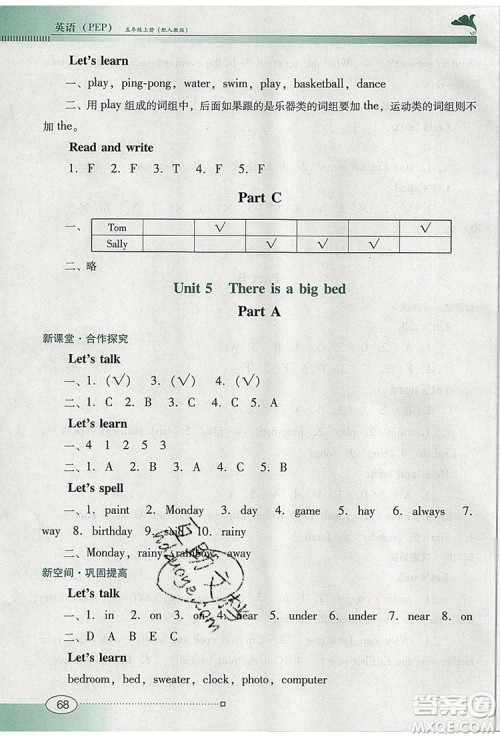 英语（PEP） 五年级上册（配人教版）
Let's learn
一、play, ping-pong, water, swim, play, basketball, dance
二、用 play 组成的词组中，后面如果跟的是乐器类的词组要加 the，运动类的词组则不
加 the。
Read and write
1. F 2. F 3. T 4. F 5. F
Part C
一、 Tom √ √
Sally √ √ √
二、略
Unit 5 There is a big bed
Part A
新课堂·合作探究
Let's talk
一、1. (√) 3. (√) 4. (√)
二、1. C 2. D 3. E 4. B 5. A
Let's learn
一、4 1 2 5 3
二、1. A 2. B 3. A 4. C 5. C
Let's spell
一、1. paint 2. Monday 3. day 4. game 5. hay 6. always 7.
way 8. birthday 9. say 10. rainy
二、Monday, rainy, rainbow, away
新空间·巩固提高
Let's talk
一、1. in 2. on 3. on 4. near 5. under 6. near 7. under 8. on
二、D A B E C
Let's learn
bedroom, bed, sweater, clock, photo, computer
68
hdzuoye.com
答案圈
MXQE.COM